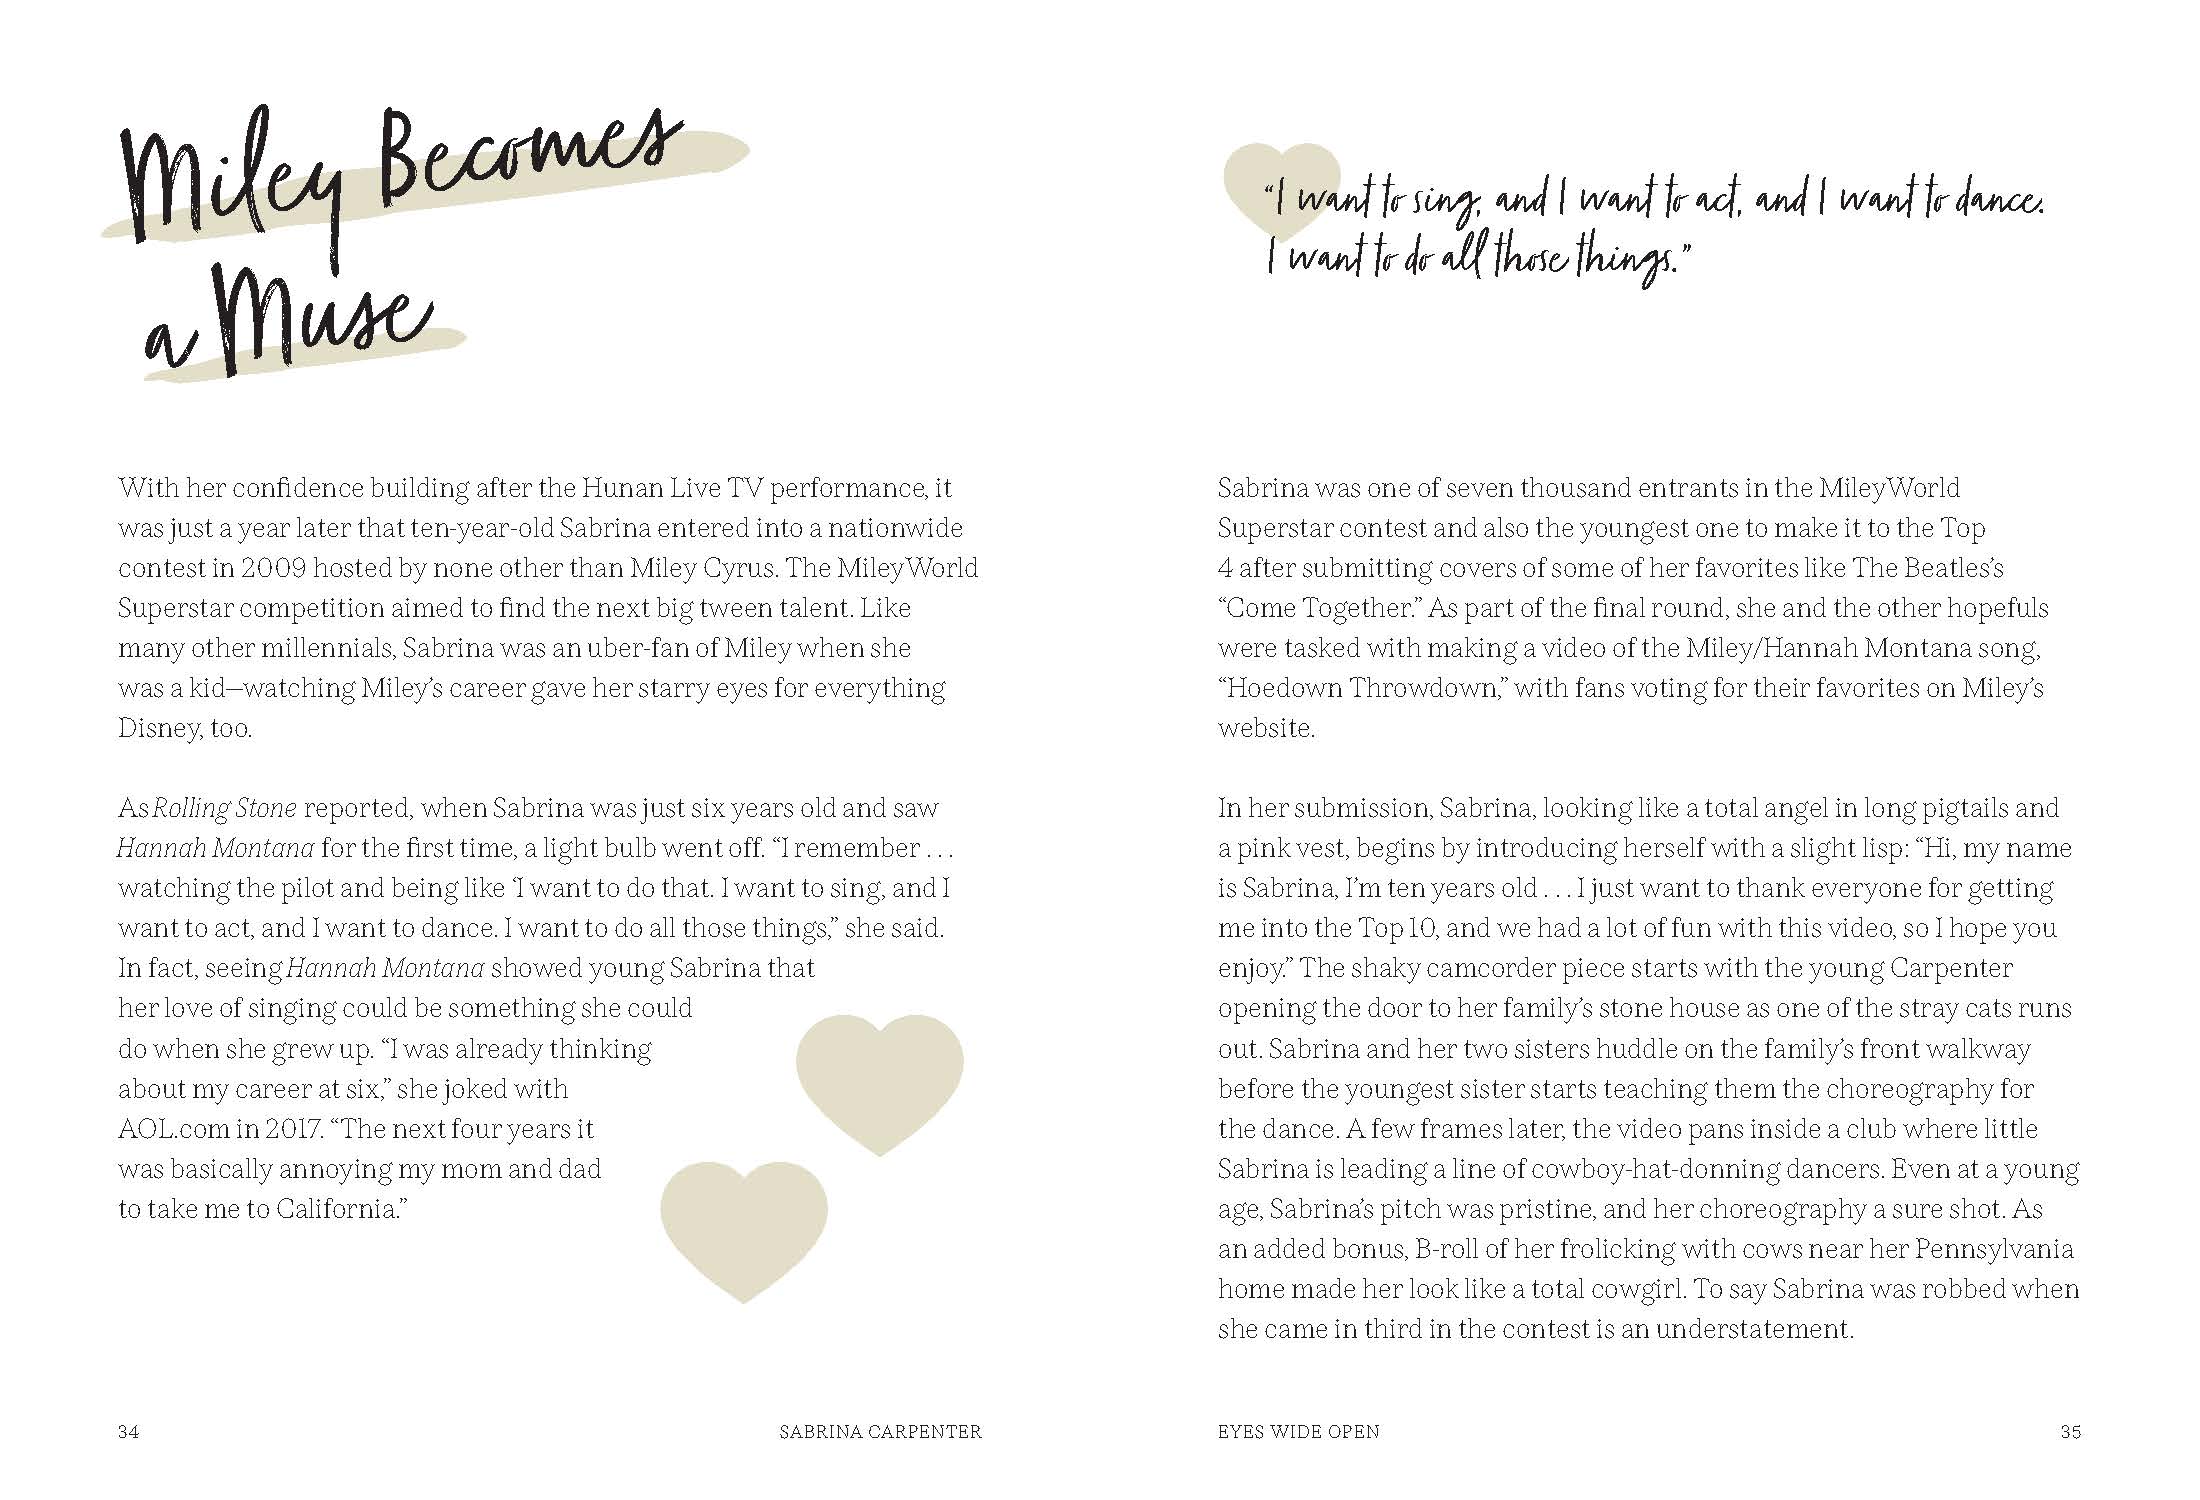 Miley Becomes
a Muse
With her confidence building after the Hunan Live TV performance, it
was just a year later that ten-year-old Sabrina entered into a nationwide
contest in 2009 hosted by none other than Miley Cyrus. The MileyWorld
Superstar competition aimed to find the next big tween talent. Like
many other millennials, Sabrina was an uber-fan of Miley when she
was a kid—watching Miley’s career gave her starry eyes for everything
Disney, too.
As Rolling Stone reported, when Sabrina was just six years old and saw
Hannah Montana for the first time, a light bulb went off. “I remember . . .
watching the pilot and being like ‘I want to do that. I want to sing, and I
want to act, and I want to dance. I want to do all those things,” she said.
In fact, seeing Hannah Montana showed young Sabrina that
her love of singing could be something she could
do when she grew up. “I was already thinking
about my career at six,” she joked with
AOL.com in 2017. “The next four years it
was basically annoying my mom and dad
to take me to California.”
34
SABRINA CARPENTER
“I want to sing, and I want to act, and I want to dance.
I want to do all those things.”
Sabrina was one of seven thousand entrants in the MileyWorld
Superstar contest and also the youngest one to make it to the Top
4 after submitting covers of some of her favorites like The Beatles’s
“Come Together.” As part of the final round, she and the other hopefuls
were tasked with making a video of the Miley/Hannah Montana song,
“Hoedown Throwdown,” with fans voting for their favorites on Miley’s
website.
In her submission, Sabrina, looking like a total angel in long pigtails and
a pink vest, begins by introducing herself with a slight lisp: “Hi, my name
is Sabrina, I’m ten years old . . . I just want to thank everyone for getting
me into the Top 10, and we had a lot of fun with this video, so I hope you
enjoy.” The shaky camcorder piece starts with the young Carpenter
opening the door to her family’s stone house as one of the stray cats runs
out. Sabrina and her two sisters huddle on the family’s front walkway
before the youngest sister starts teaching them the choreography for
the dance. A few frames later, the video pans inside a club where little
Sabrina is leading a line of cowboy-hat-donning dancers. Even at a young
age, Sabrina’s pitch was pristine, and her choreography a sure shot. As
an added bonus, B-roll of her frolicking with cows near her Pennsylvania
home made her look like a total cowgirl. To say Sabrina was robbed when
she came in third in the contest is an understatement.
EYES WIDE OPEN
35